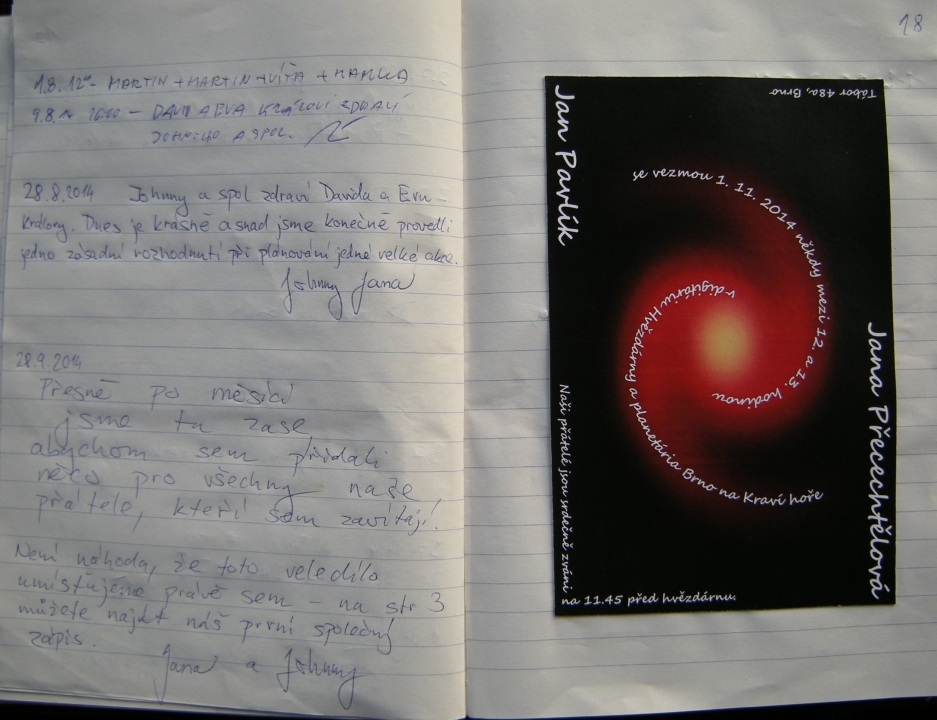 1.8. 12°° - MARTIN + MARTIN + VÍŤA + HANKA
9.8.14 16:00 - DAVID A EVA KRÁLOVI ZDRAVÍ
JOHNIHO A SPOL.
28.8.2014 Johnny a spol zdraví Davida a Evu
Královy. Dnes je krásně a snad jsme konečně provedli
jedno zásadní rozhodnutí při plánování jedné velké akce.
Johnny Jana
28.9.2014
Přesně po měsíci
jsme tu zase
abychom sem přidali
něco pro všechny naše
přátelé, kteří sem zavítají.
Není náhoda, že toto veledílo
umisťujeme právě sem - na str 3
můžete najít náš první společný
zápis.
Jana a Johnny
18
Tábor 48a, Brno
Jan Pavlík
se vezmou 1. 11. 2014 někdy mezi 12. a 13. hodinou
v digitáriu Hvězdárny a planetária Brno na Kraví hoře
Jana Přecechtělová
Naši přátelé jsou srdečně zváni
na 11.45 před hvězdárnu.